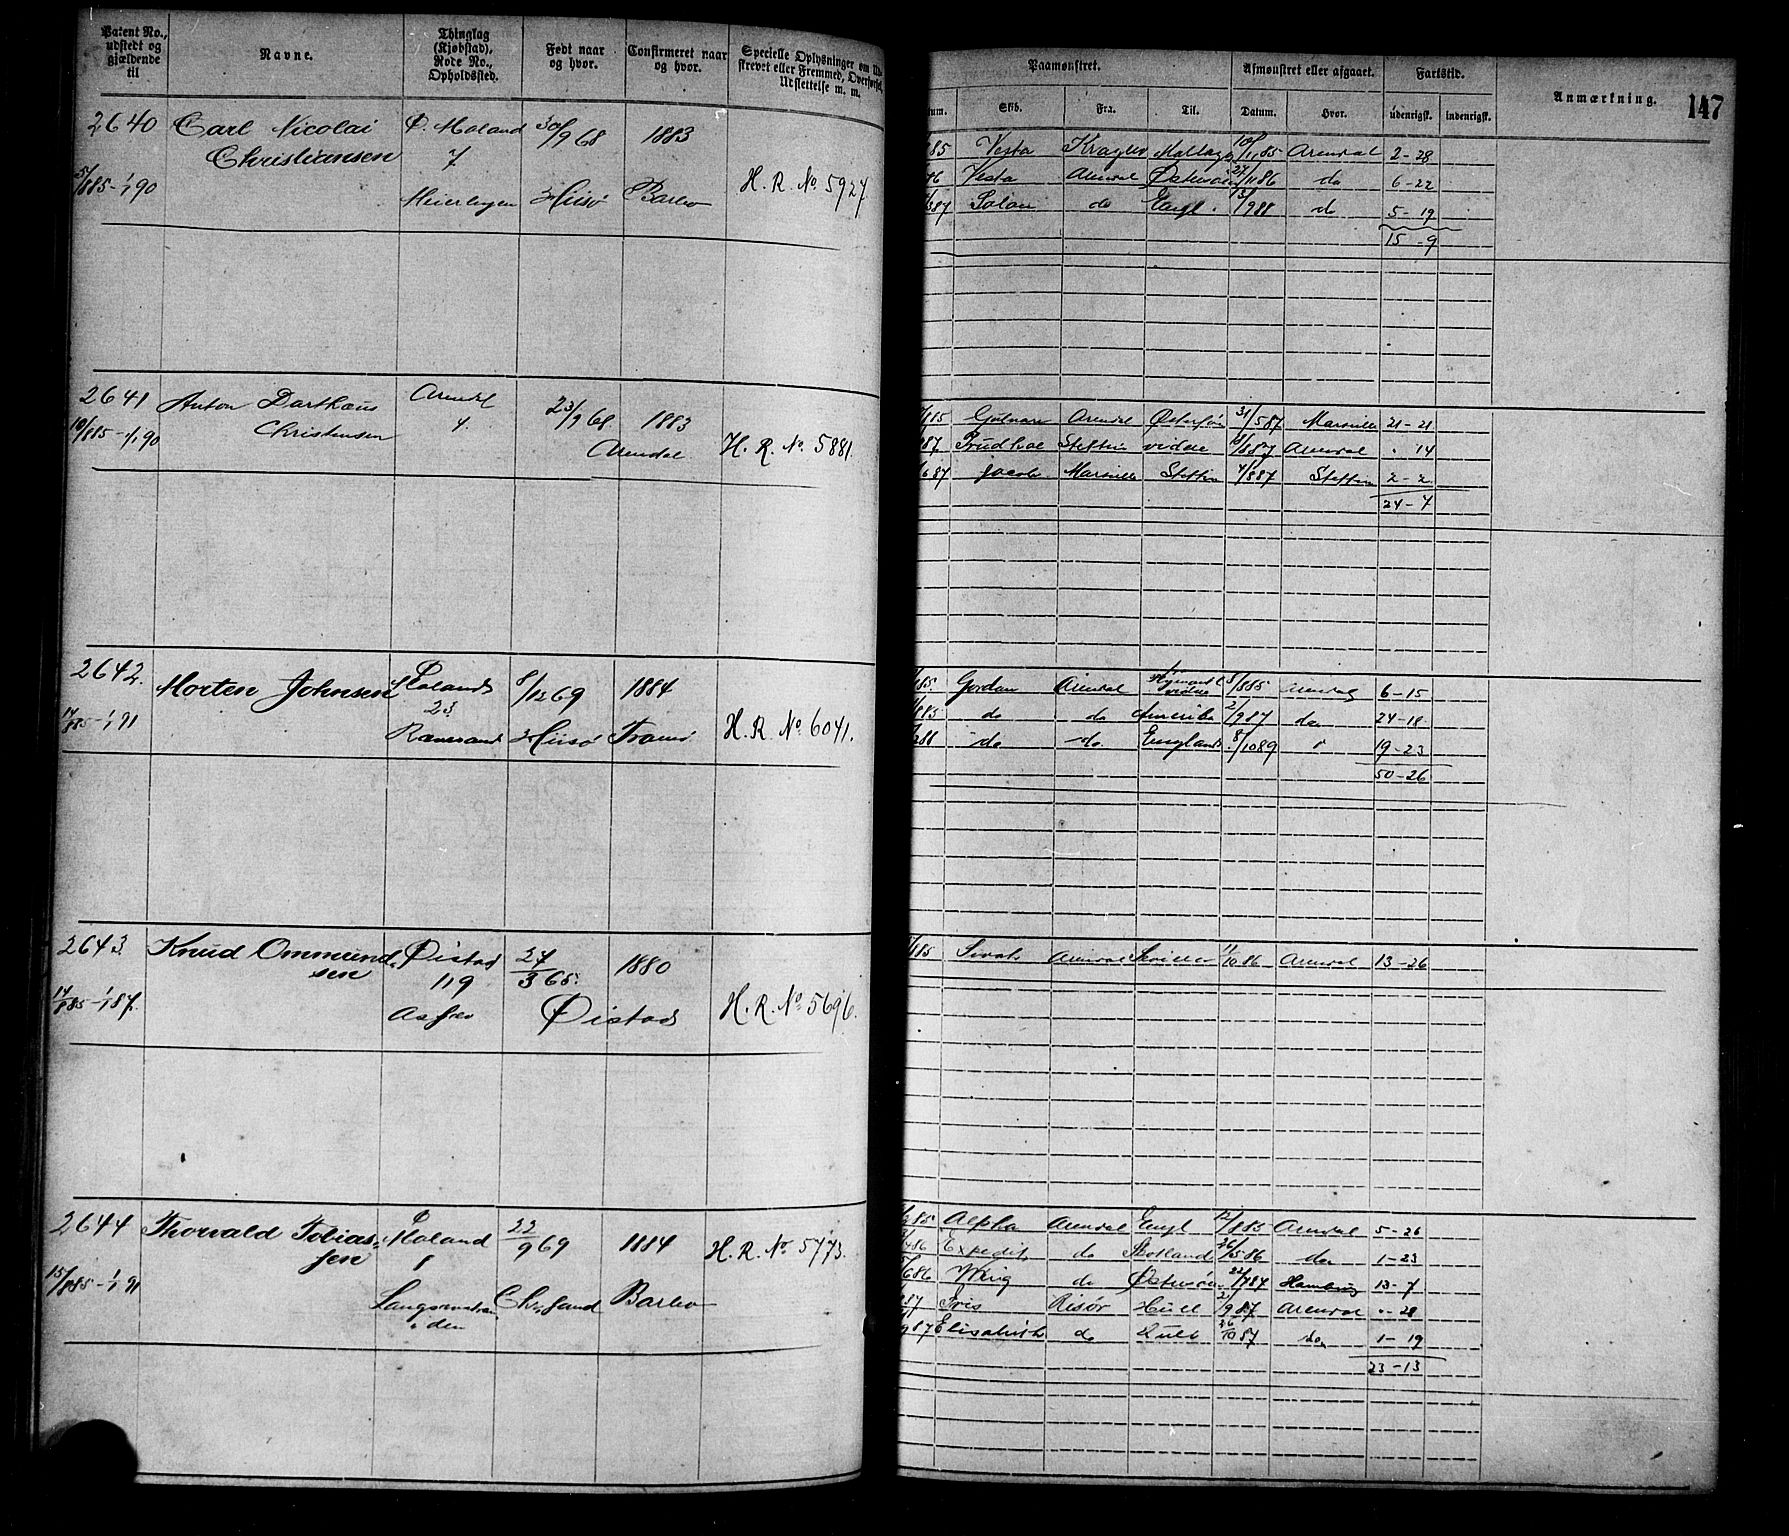 Patent No., udstedt og gjældende til
Navne.
Thinglag (Kjøbstad), Rode No., Opholdssted.
Født naar og hvor.
Confirmeret naar og hvor.
Specielle Oplysninger om
skrevet eller Fremmed, Overførsel,
Udslettelse m. m.
Paamønstret.
Afmønstret eller afgaaet.
Fartstid.
Anmærkning.
147
Skib.
Fra.
Til.
Datum.
Hvor.
udenrigsk.
indenrigsk.
2640 Carl Nicolai Ø. Moland 30/9 68 1883
Christiansen 7
H. R. No. 5927.
885-1/1 90 Hisø Barbo
85 Vesta Kragerø Mallaga 10/11 85 Arendal 2-28
86 Vesta Arendal Østersøen 86 do 6-22
87 Solon do Engl. 9 88 do 5-19
15-9
2641 Anton Darthæus Arendal 23/9 68 1883
Christensen 4.
10/8 85-1/1 90 Arendal H. R. No. 5881.
85 Arendal 31/5 87 Marseille 21-21
87 Stettin vidre 8/8 87 Arendal " 14
6 87 Jacob Marseille Stettin 4/8 87 Stettin 2-2
24-7
2642. Morten Johnsen Ø Moland 8/12 69 1884
23.
14/8 85-1/1 91 Hisø Tromø H. R. No. 6041.
85. Gordon Arendal vidre 85 Arendal 6-15
85 do do Amerika 2/9 87 do 24-18
88 do do England 8/10 89 " 19-23
50-26
2643. Knud Ommund- Øistad 27/3 65. 1880
sen 119
14/8 85-1/1 87. Øistad H. R. No. 5696.
85 Sirah Arendal 11/10 86 Arendal 13-26
2644 Thorvald Tobias- Ø Moland 22/9 69 1884 H. R. No. 5773.
sen 8
15/8 85-1/1 91 Chr.sand Barbo
85 Alpha Arendal Engl 86 Arendal 5-26
4 86 Expedit do Skotland 26/5 86 do 1-23
6 86 do Østersøen 22/7 87 Hamburg 13-7
87 Iris Risør Hull 2/9 87 Arendal "-28
9 87 Elisabeth do Hull 26/10 87 do 1-19
23-13